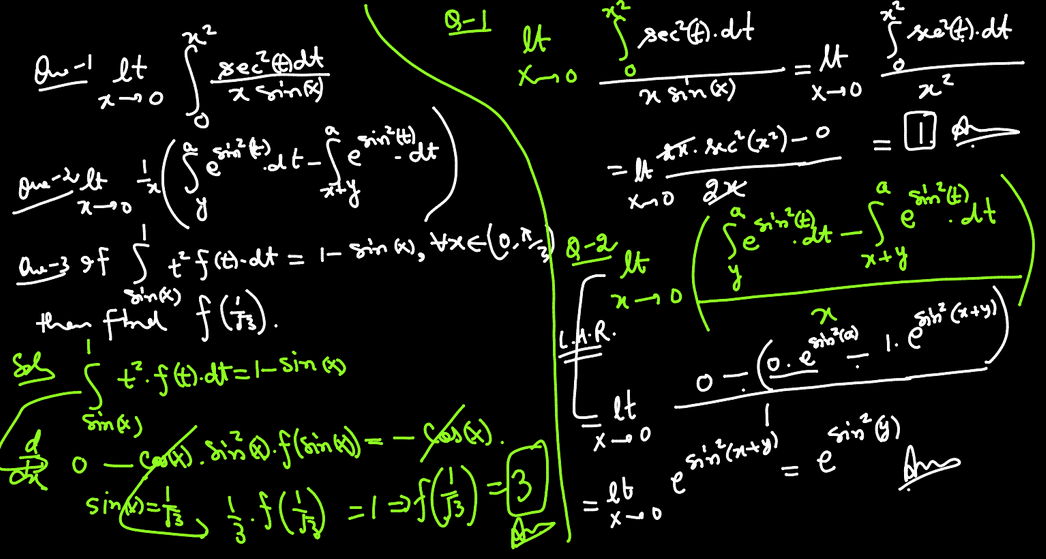 Que-1 lt x→0 ∫₀^{x²} sec²(t)dt / x sin(x)
Que-2 lt x→0 1/x ( ∫_y^a e^{sin²(t)}.dt - ∫_{x+y}^a e^{sin²(t)}.dt )
Que-3 If ∫_{sin(x)}^1 t² f(t).dt = 1 - sin(x), ∀x∈(0, π/2)
then find f(1/√3).
Sol ∫_{sin(x)}^1 t². f(t).dt = 1 - sin(x)
d/dx 0 - cos(x). sin²(x). f(sin(x)) = - cos(x).
sin(x) = 1/√3 1/3 . f(1/√3) = 1 ⇒ f(1/√3) = 3 Ans
Q-1 lt x→0 ∫₀^{x²} sec²(t).dt / x sin(x) = lt x→0 ∫₀^{x²} sec²(t).dt / x²
= lt x→0 2x. sec²(x²) - 0 / 2x = 1 Ans
Q-2 lt x→0 ( ∫_y^a e^{sin²(t)}.dt - ∫_{x+y}^a e^{sin²(t)}.dt ) / x
L.H.R.
= lt x→0 0 - (0. e^{sin²(a)} - 1. e^{sin²(x+y)}) / 1
= lt x→0 e^{sin²(x+y)} = e^{sin²(y)} Ans